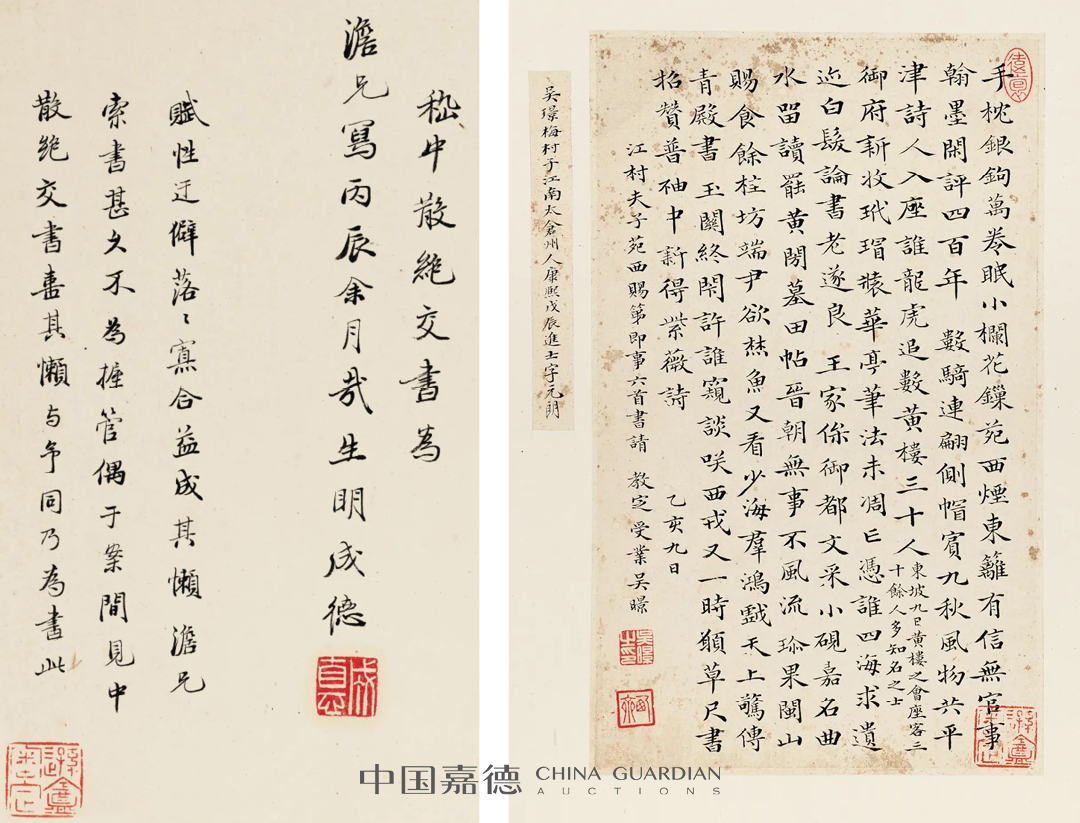 手枕銀鉤萬卷眠小欄花鏁苑西煙東籬有信無官事
翰墨閑評四百年 數騎連翩側帽賓九秋風物共平
津詩人入座誰龍虎追數黃樓三十人
東坡九日黃樓之會座客三
十餘人多知名之士
御府新收玳瑁裝華亭筆法未凋亡憑誰四海求遺
迹白髮論書老遂良 王家係御都文采小硯嘉名曲
水留讀罷黃閣墓田帖晉朝無事不風流 珍果閩山
賜食餘柱坊端尹欲焚魚又看少海羣鴻戲天上驚傳
青殿書 玉關終閑許誰窺談咲西戎又一時願草尺書
招贊普袖中新得紫薇詩
乙亥九日
江村夫子苑西賜第即事六首書請 教定受業吳暻
吳璟梅村子江南太倉州人康熙戊辰進士字元朗
嵇中散絕交書為
澹兄寫丙辰余月哉生明成德
成德
賦性迂僻落〻寡合益成其懶澹兄
索書甚久不為握管偶于案間見中
散絕交書喜其懶与予同乃為書此
中国嘉德 CHINA GUARDIAN
AUCTIONS